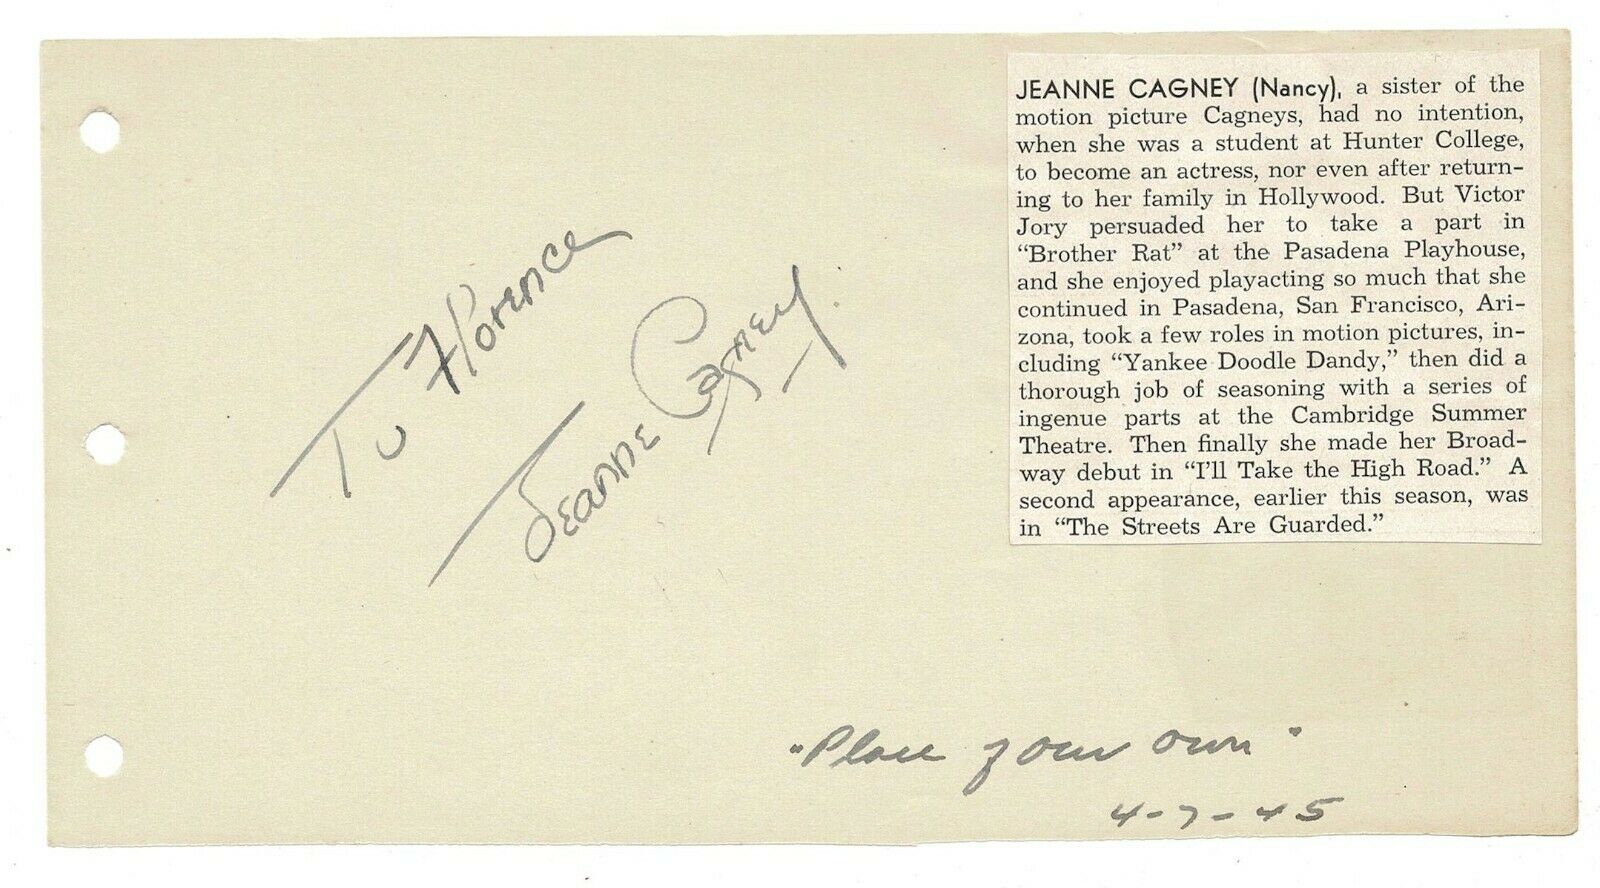 To Florence
Jeanne Cagney.
JEANNE CAGNEY (Nancy), a sister of the
motion picture Cagneys, had no intention,
when she was a student at Hunter College,
to become an actress, nor even after return-
ing to her family in Hollywood. But Victor
Jory persuaded her to take a part in
“Brother Rat” at the Pasadena Playhouse,
and she enjoyed playacting so much that she
continued in Pasadena, San Francisco, Ari-
zona, took a few roles in motion pictures, in-
cluding “Yankee Doodle Dandy,” then did a
thorough job of seasoning with a series of
ingenue parts at the Cambridge Summer
Theatre. Then finally she made her Broad-
way debut in “I'll Take the High Road.” A
second appearance, earlier this season, was
in “The Streets Are Guarded.”
"Place your own"
4-7-45